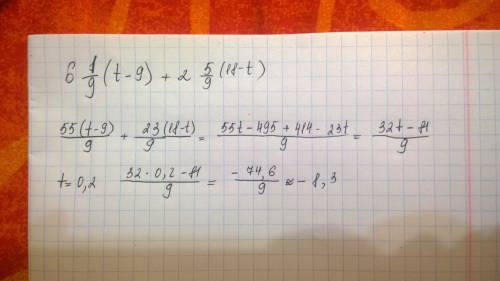 6 1/9 (t-9) + 2 5/9 (18-t)
55(t-9)/9 + 23(18-t)/9 = 55t-495+414-23t/9 = 32t-81/9
t=0,2 32·0,2-81/9 = -74,6/9 ≈ -8,3